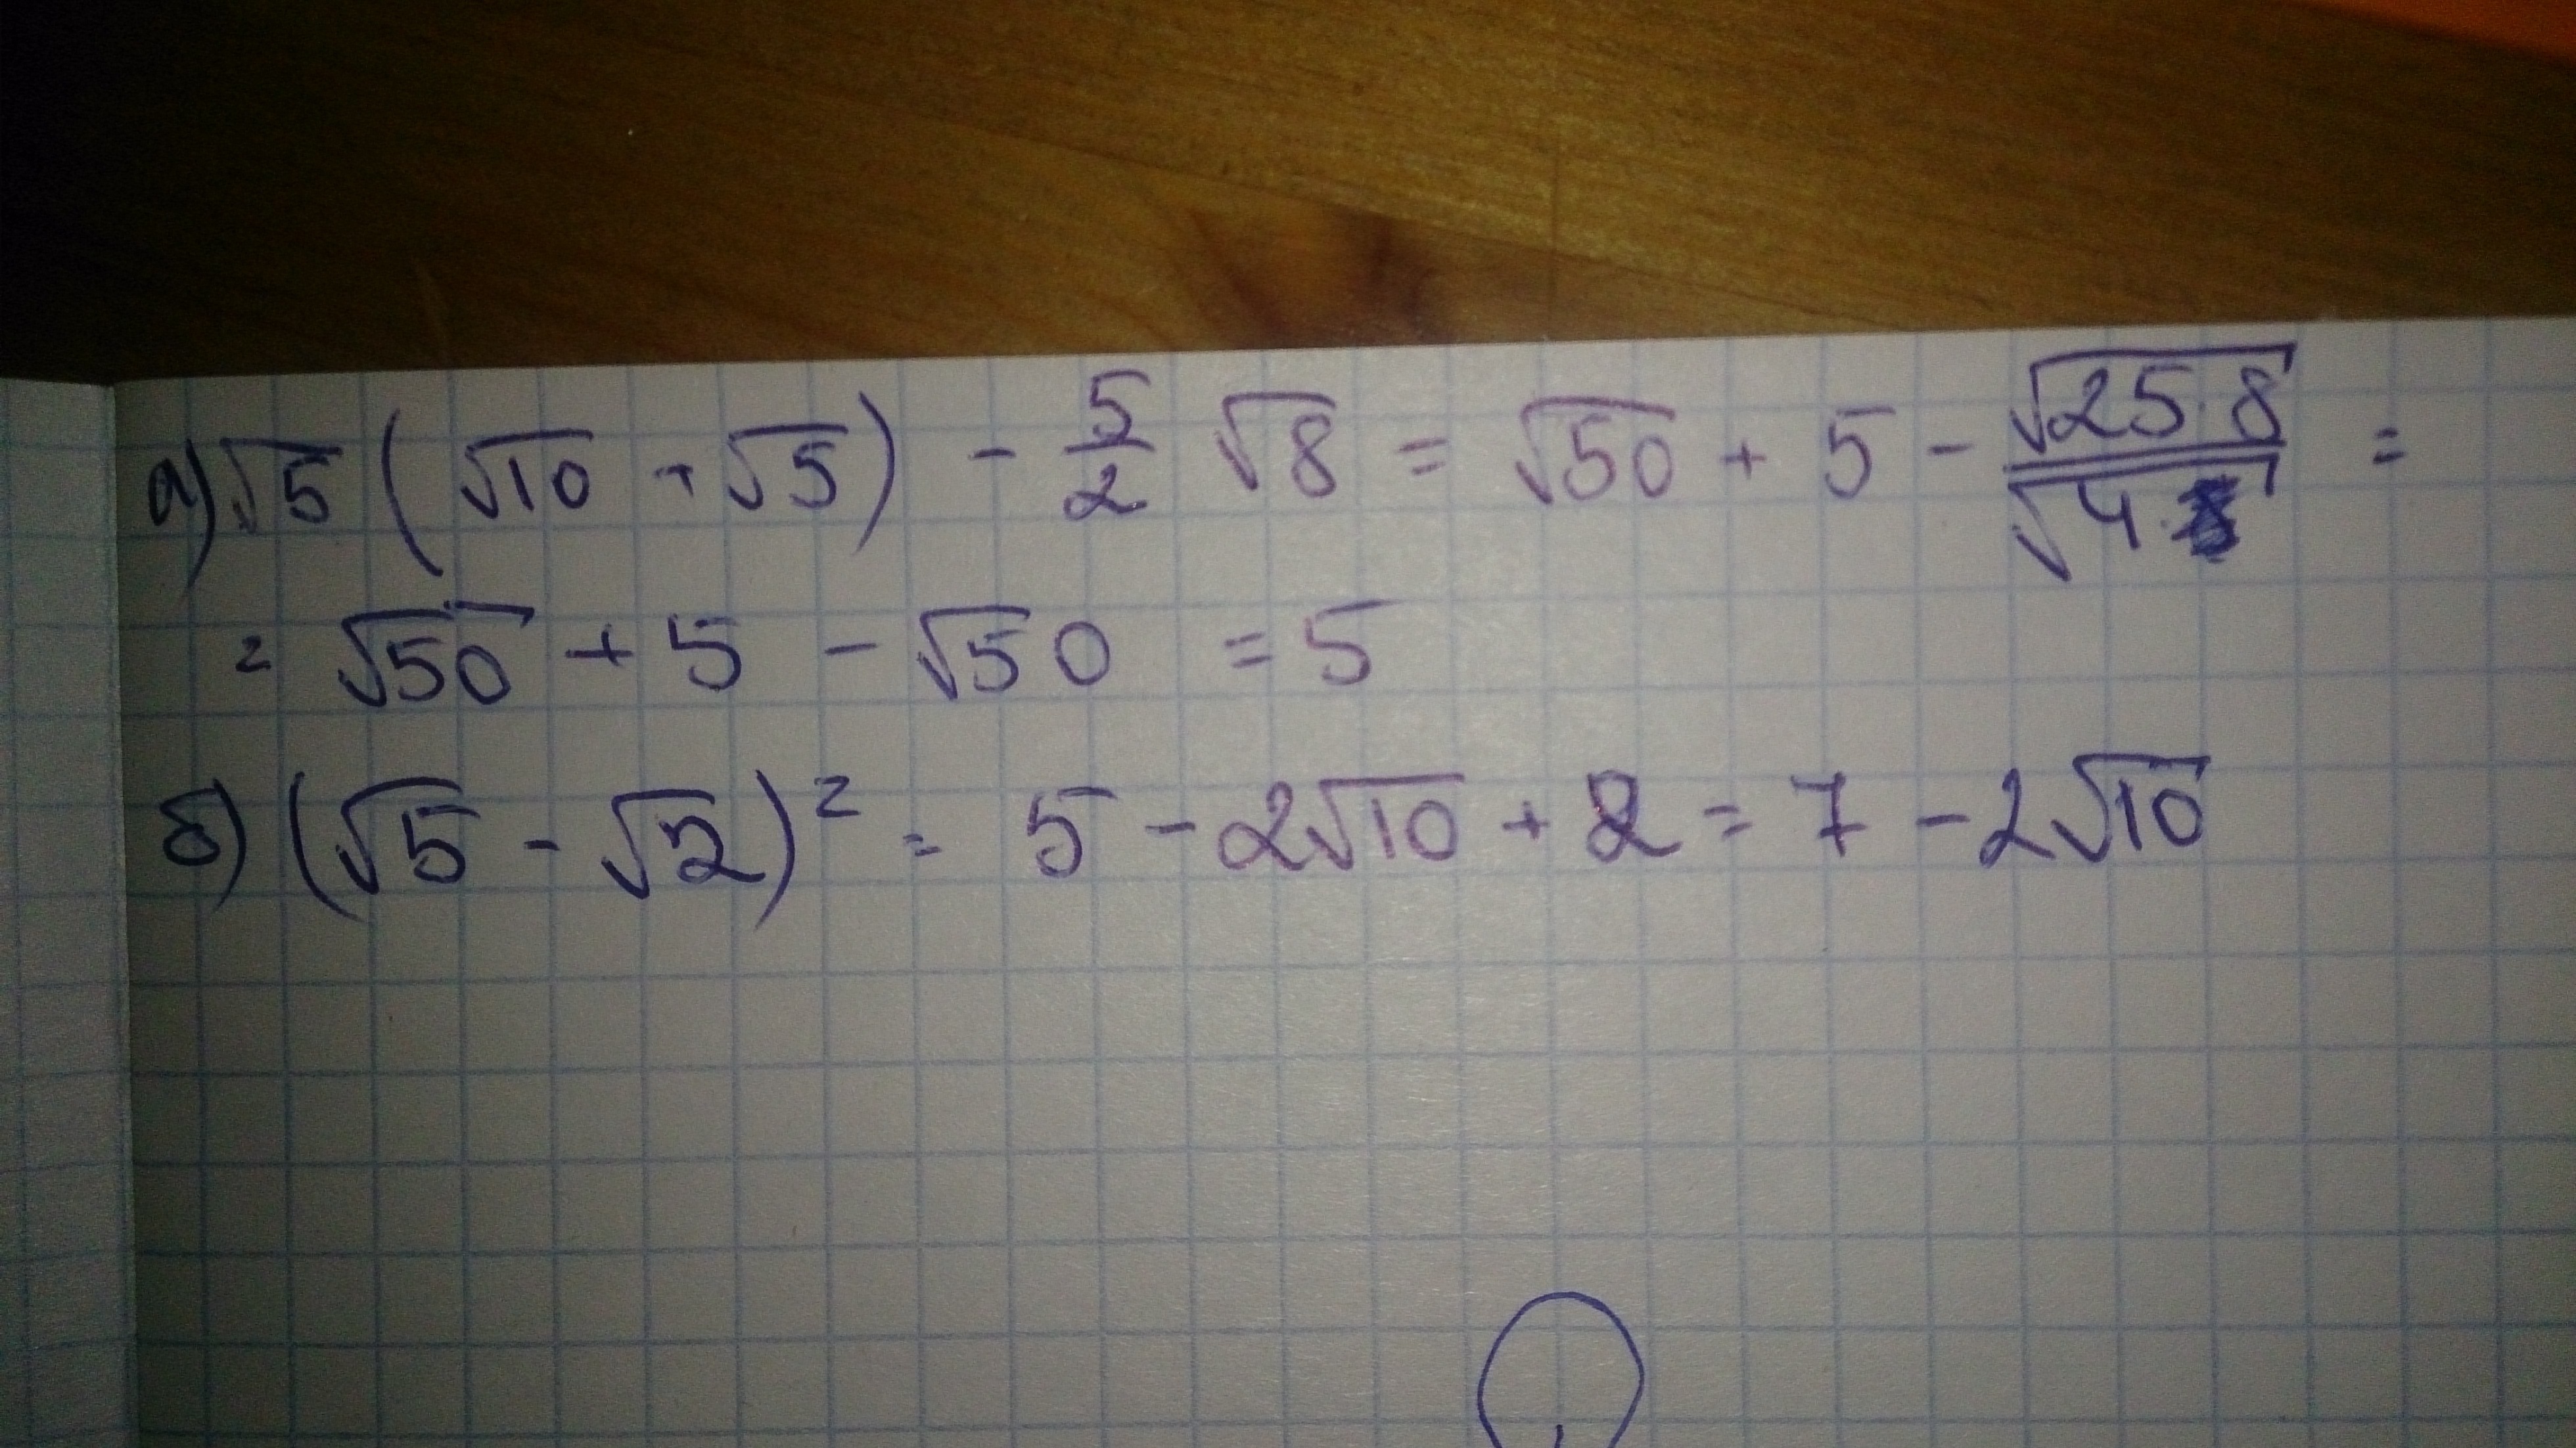 а) √5 (√10 + √5) - 5/2 √8 = √50 + 5 - √(25·8)/√4 =
= √50 + 5 - √50 = 5
б) (√5 - √2)² = 5 - 2√10 + 2 = 7 - 2√10